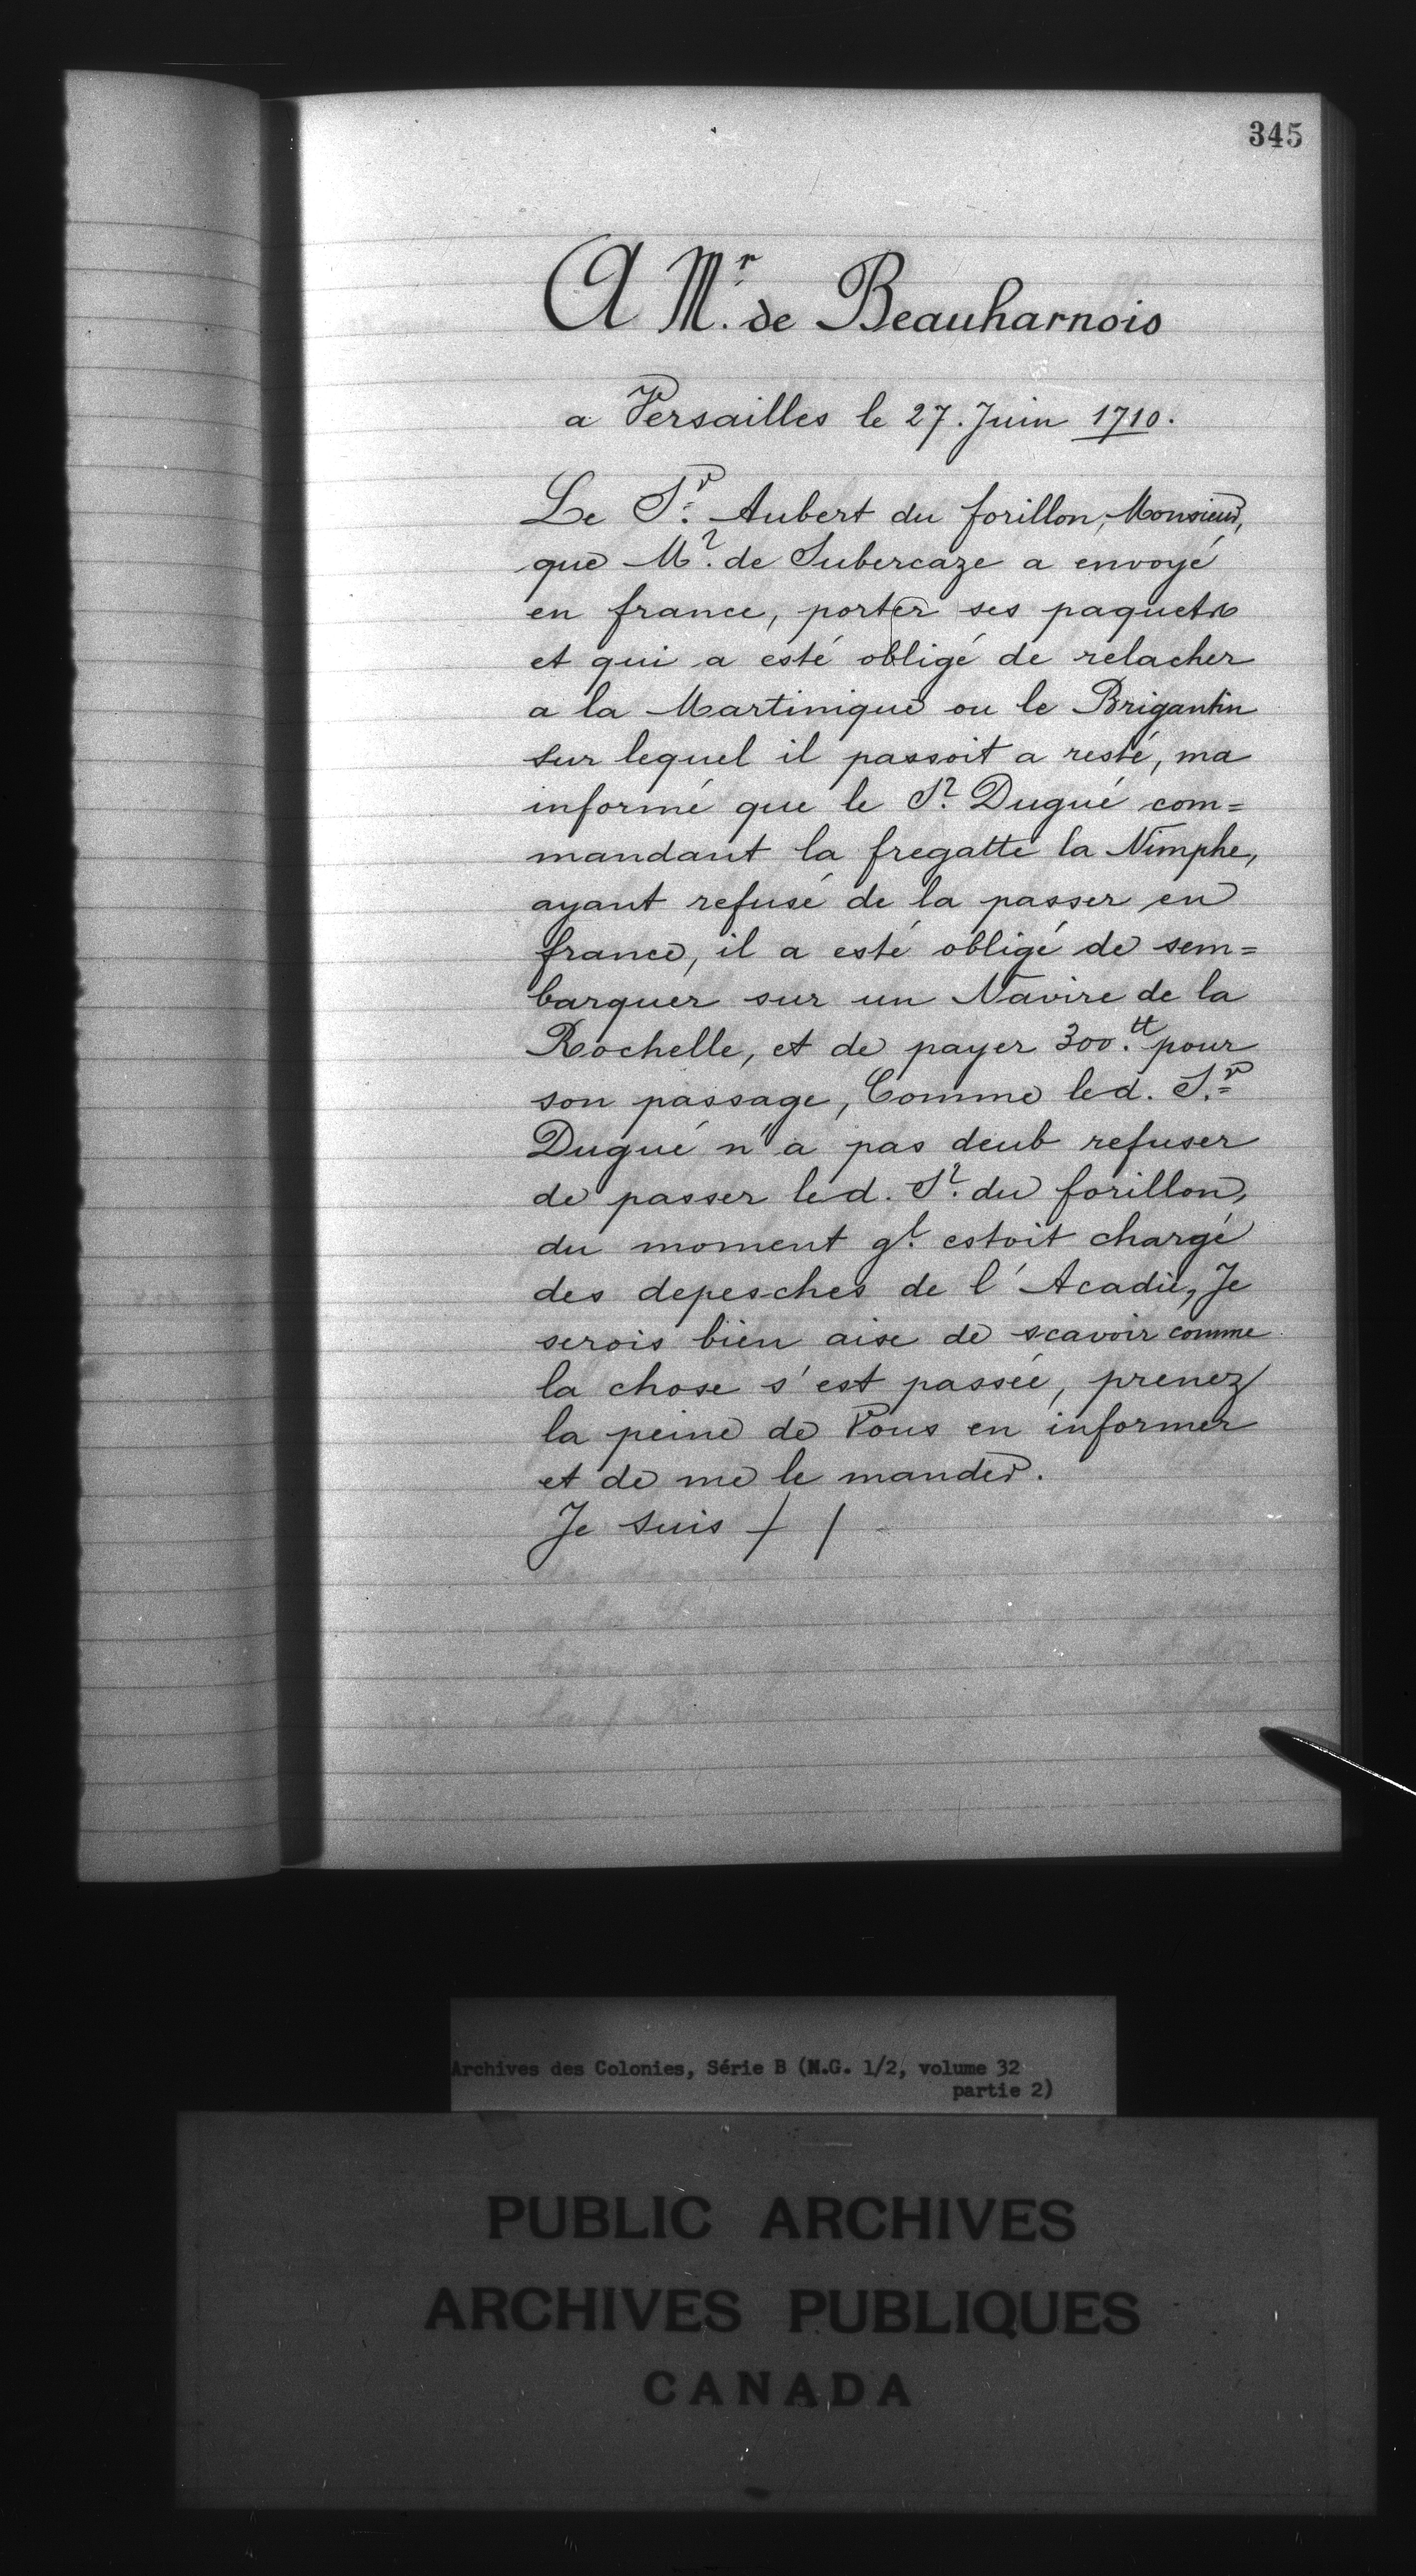 345
A Mr. de Beauharnois
a Versailles le 27. Juin 1710.
Le Sr. Aubert du forillon, Monsieur,
que Mr. de Subercaze a envoyé
en france, porter ses paquets
et qui a esté obligé de relacher
a la Martinique ou le Brigantin
sur lequel il passoit a resté, ma
informé que le Sr. Dugué com=
mandant la fregatte la Nimphe,
ayant refusé de la passer en
france, il a esté obligé de sem=
barquer sur un Navire de la
Rochelle, et de payer 300.tt pour
son passage, Comme led. Sr.
Dugué n'a pas deub refuser
de passer led. Sr. du forillon,
du moment ql. estoit chargé
des depesches de l'Acadie, Je
serois bien aise de scavoir comme
la chose s'est passée, prenez
la peine de Vous en informer
et de me le mander.
Je suis + /
Archives des Colonies, Série B (M.G. 1/2, volume 32
partie 2)
PUBLIC ARCHIVES
ARCHIVES PUBLIQUES
CANADA